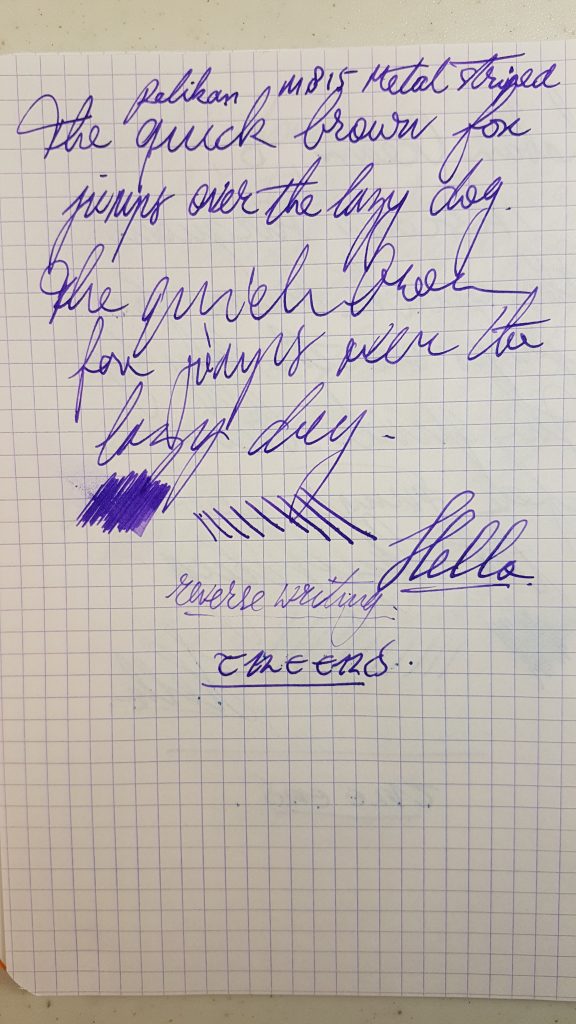 Pelikan M815 Metal Striped
The quick brown fox
jumps over the lazy dog.
The quick brown
fox jumps over the
lazy dog.
Hello.
reverse writing.